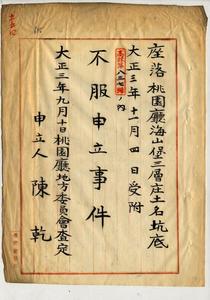 座落桃園廳海山堡三層庄土名坑底
大正三年十一月四日受附
高詳第八三七號ノ内
不服申立事件
大正三年九月十日桃園廳地方委員會查定
申立人 陳乾